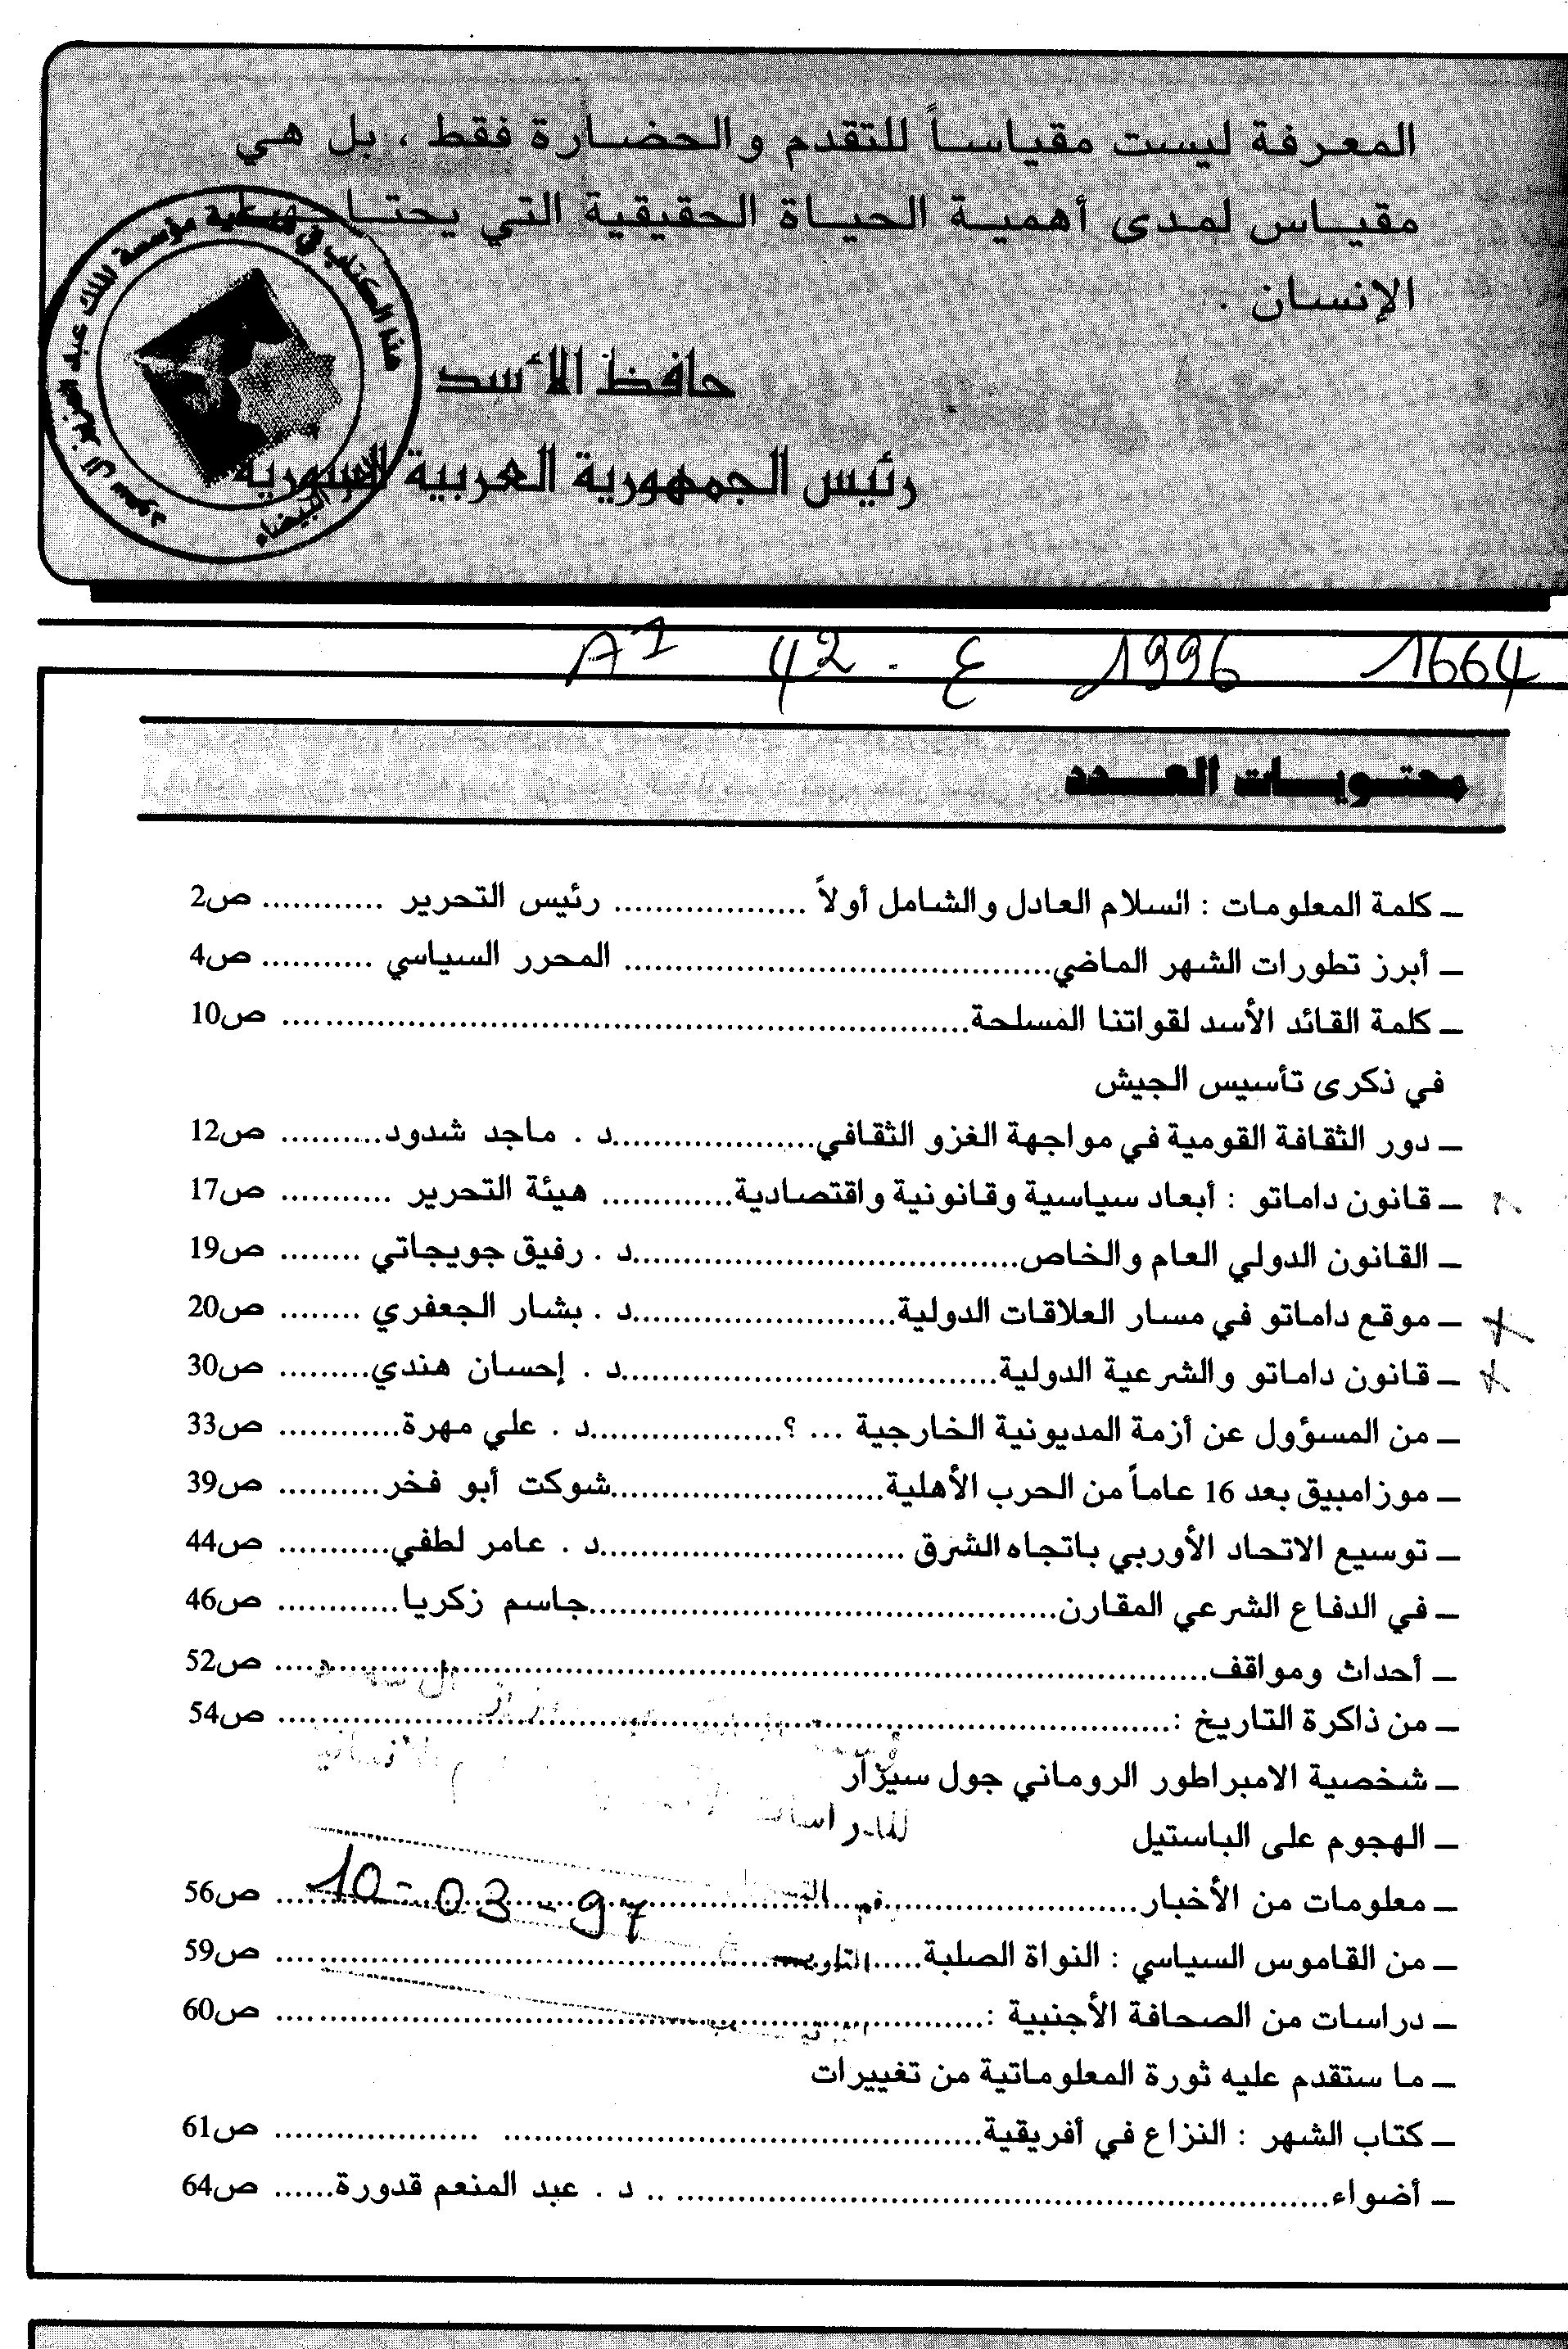 المعرفة ليست مقياساً للتقدم والحضارة فقط ، بل هي
مقياس لمدى أهمية الحياة الحقيقية التي يحتاجها
الإنسان .
حافظ الأسد
رئيس الجمهورية العربية السورية
مؤسسة الملك عبد العزيز آل سعود
الدار البيضاء
A1 42 . ع 1996 1664
محتويات العدد
ـ كلمة المعلومات : السلام العادل والشامل أولاً ................... رئيس التحرير ............ ص2
ـ أبرز تطورات الشهر الماضي.......................................... المحرر السياسي ........... ص4
ـ كلمة القائد الأسد لقواتنا المسلحة.................................................................. ص10
في ذكرى تأسيس الجيش
ـ دور الثقافة القومية في مواجهة الغزو الثقافي....................د . ماجد شدود.......... ص12
ـ قانون داماتو : أبعاد سياسية وقانونية واقتصادية............. هيئة التحرير ........... ص17
ـ القانون الدولي العام والخاص......................................د . رفيق جويجاتي ........ ص19
ـ موقع داماتو في مسار العلاقات الدولية..........................د . بشار الجعفري ........ ص20
ـ قانون داماتو والشرعية الدولية.....................................د . إحسان هندي......... ص30
ـ من المسؤول عن أزمة المديونية الخارجية ... ؟...................د . علي مهرة............ ص33
ـ موزامبيق بعد 16 عاماً من الحرب الأهلية...........................شوكت أبو فخر.......... ص39
ـ توسيع الاتحاد الأوربي باتجاه الشرق ..............................د . عامر لطفي........... ص44
ـ في الدفاع الشرعي المقارن..............................................جاسم زكريا............ ص46
ـ أحداث ومواقف........................................................................................... ص52
ـ من ذاكرة التاريخ :....................................................................................... ص54
ـ شخصية الامبراطور الروماني جول سيزار
للدراسات
ـ الهجوم على الباستيل
ـ معلومات من الأخبار.................................................................................... ص56
10-03-97
ـ من القاموس السياسي : النواة الصلبة............................................................... ص59
ـ دراسات من الصحافة الأجنبية :..................................................................... ص60
ـ ما ستقدم عليه ثورة المعلوماتية من تغييرات
ـ كتاب الشهر : النزاع في أفريقية............................................... .................... ص61
ـ أضواء................................................................ .. د . عبد المنعم قدورة...... ص64